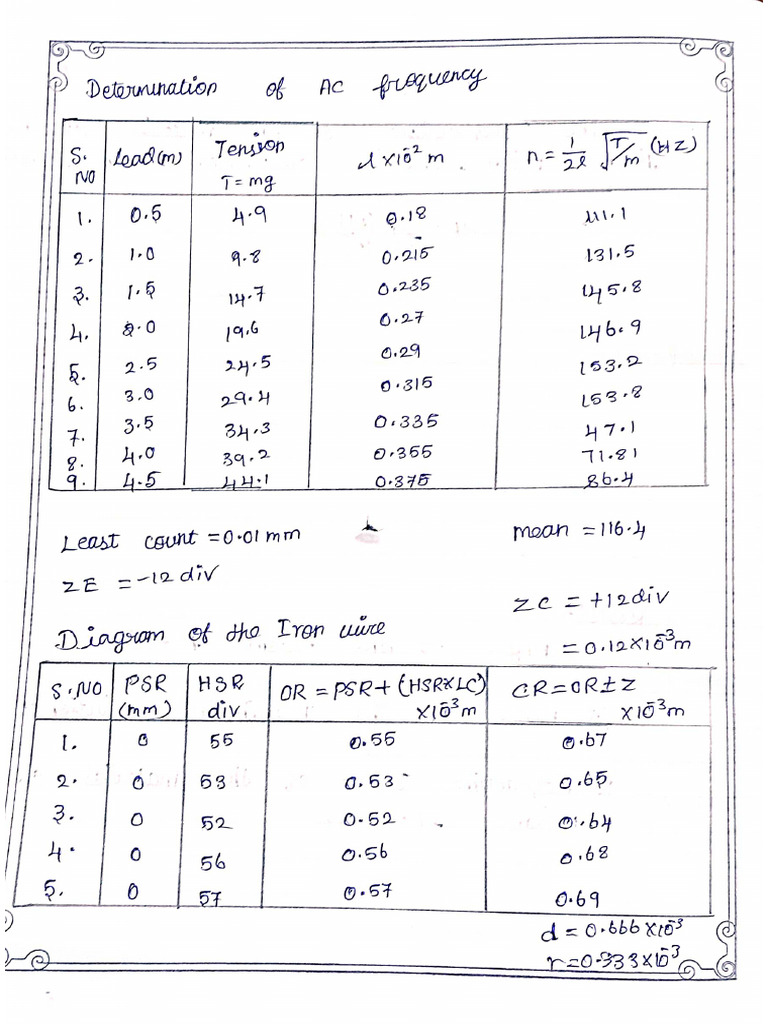 Determination of AC frequency
S. NO | Load(m) | Tension T = mg | l x10⁻² m | n = 1/2l √T/m (HZ)
1. | 0.5 | 4.9 | 0.18 | 111.1
2. | 1.0 | 9.8 | 0.215 | 131.5
3. | 1.5 | 14.7 | 0.235 | 145.8
4. | 2.0 | 19.6 | 0.27 | 146.9
5. | 2.5 | 24.5 | 0.29 | 153.2
6. | 3.0 | 29.4 | 0.315 | 153.8
7. | 3.5 | 34.3 | 0.335 | 47.1
8. | 4.0 | 39.2 | 0.355 | 71.81
9. | 4.5 | 44.1 | 0.375 | 86.4
Least count = 0.01 mm
mean = 116.4
ZE = -12 div
ZC = +12 div
= 0.12x10⁻³m
Diagram of the Iron wire
S.NO | PSR (mm) | HSR div. | OR = PSR+(HSRxLC) x10⁻³m | CR = OR±Z x10⁻³m
1. | 0 | 55 | 0.55 | 0.67
2. | 0 | 53 | 0.53 | 0.65
3. | 0 | 52 | 0.52 | 0.64
4. | 0 | 56 | 0.56 | 0.68
5. | 0 | 57 | 0.57 | 0.69
d = 0.666x10⁻³
r = 0.333x10⁻³